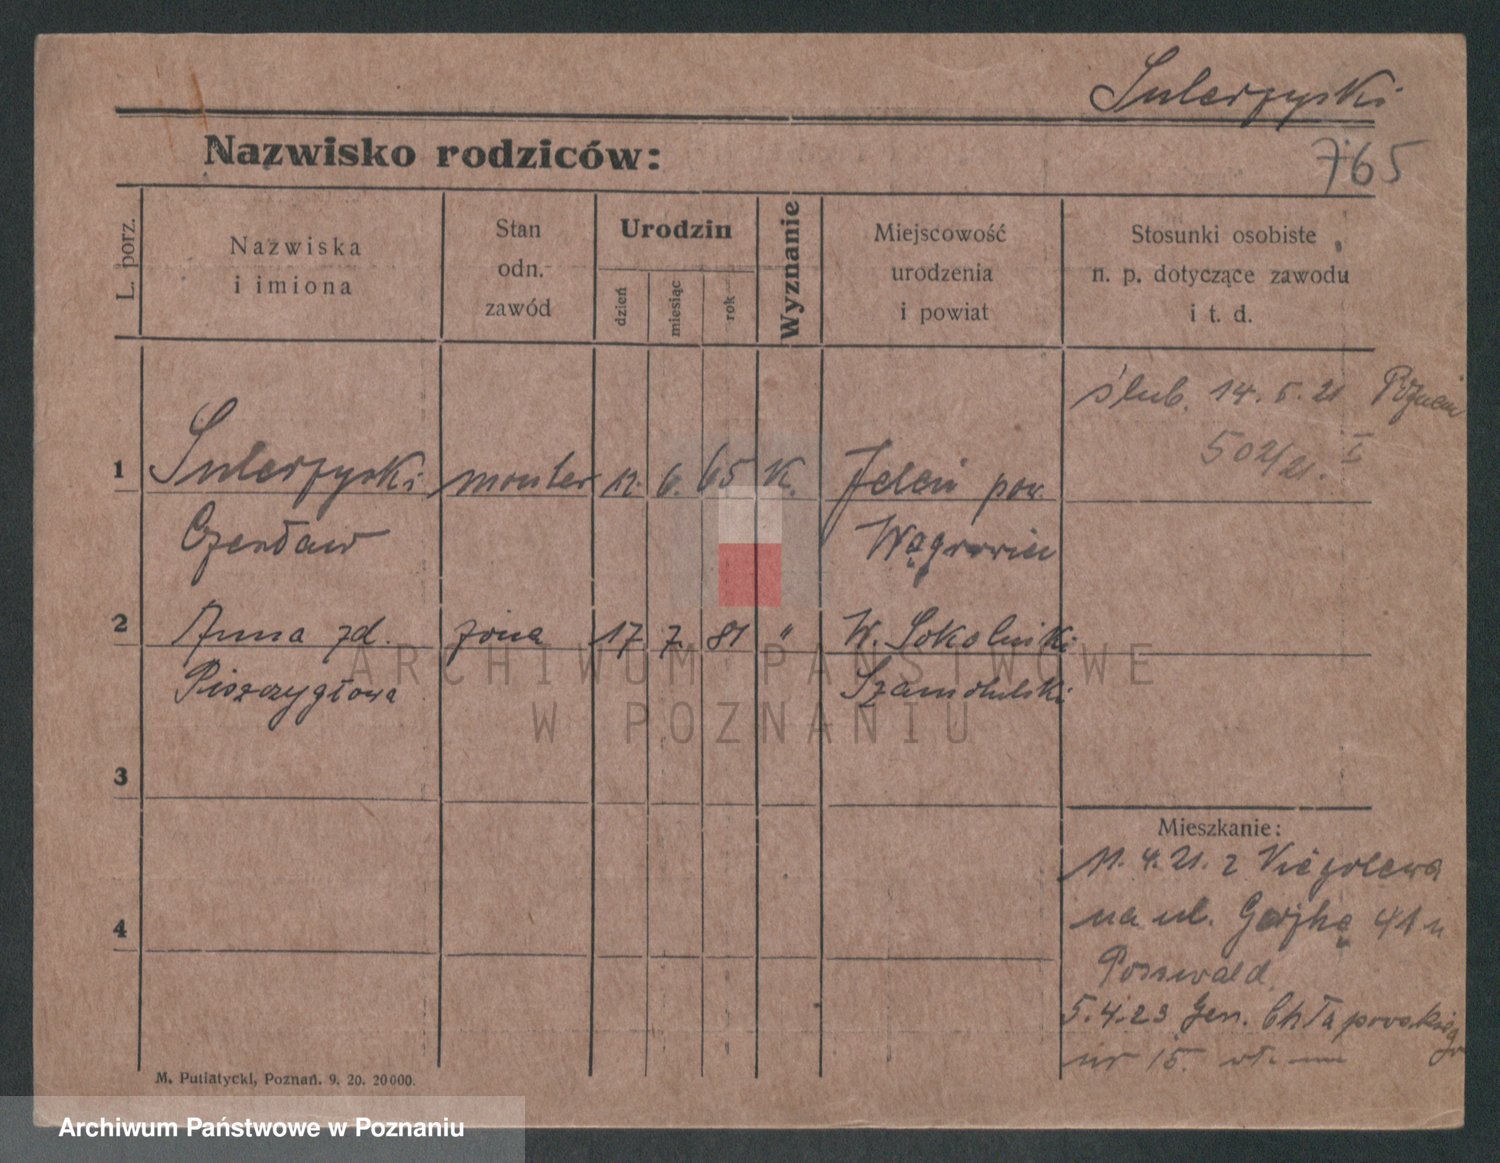 Sulerzyski
765
Nazwisko rodziców:
L. porz.
Nazwiska
i imiona
Stan
odn.
zawód
Urodzin
dzień
miesiąc
rok
Wyznanie
Miejscowość
urodzenia
i powiat
Stosunki osobiste
n. p. dotyczące zawodu
i t. d.
ślub. 14. 5. 21 Poznań
502/21. I
1 Sulerzyski monter 12. 6. 65 K. Jeleń pow.
Czesław Wągrowiec
2 Anna zd. żona 17 7. 81 " W. Sokolniki
Piszczygłowa Szamotulski
3
Mieszkanie:
11. 4. 21. z
na ul. 41 u
4
Posswald
5.4.23 Gen. Chłapowskiego
nr 15. wł.
M. Putiatycki, Poznań. 9. 20. 20000.
ARCHIWUM PAŃSTWOWE
W POZNANIU
Archiwum Państwowe w Poznaniu